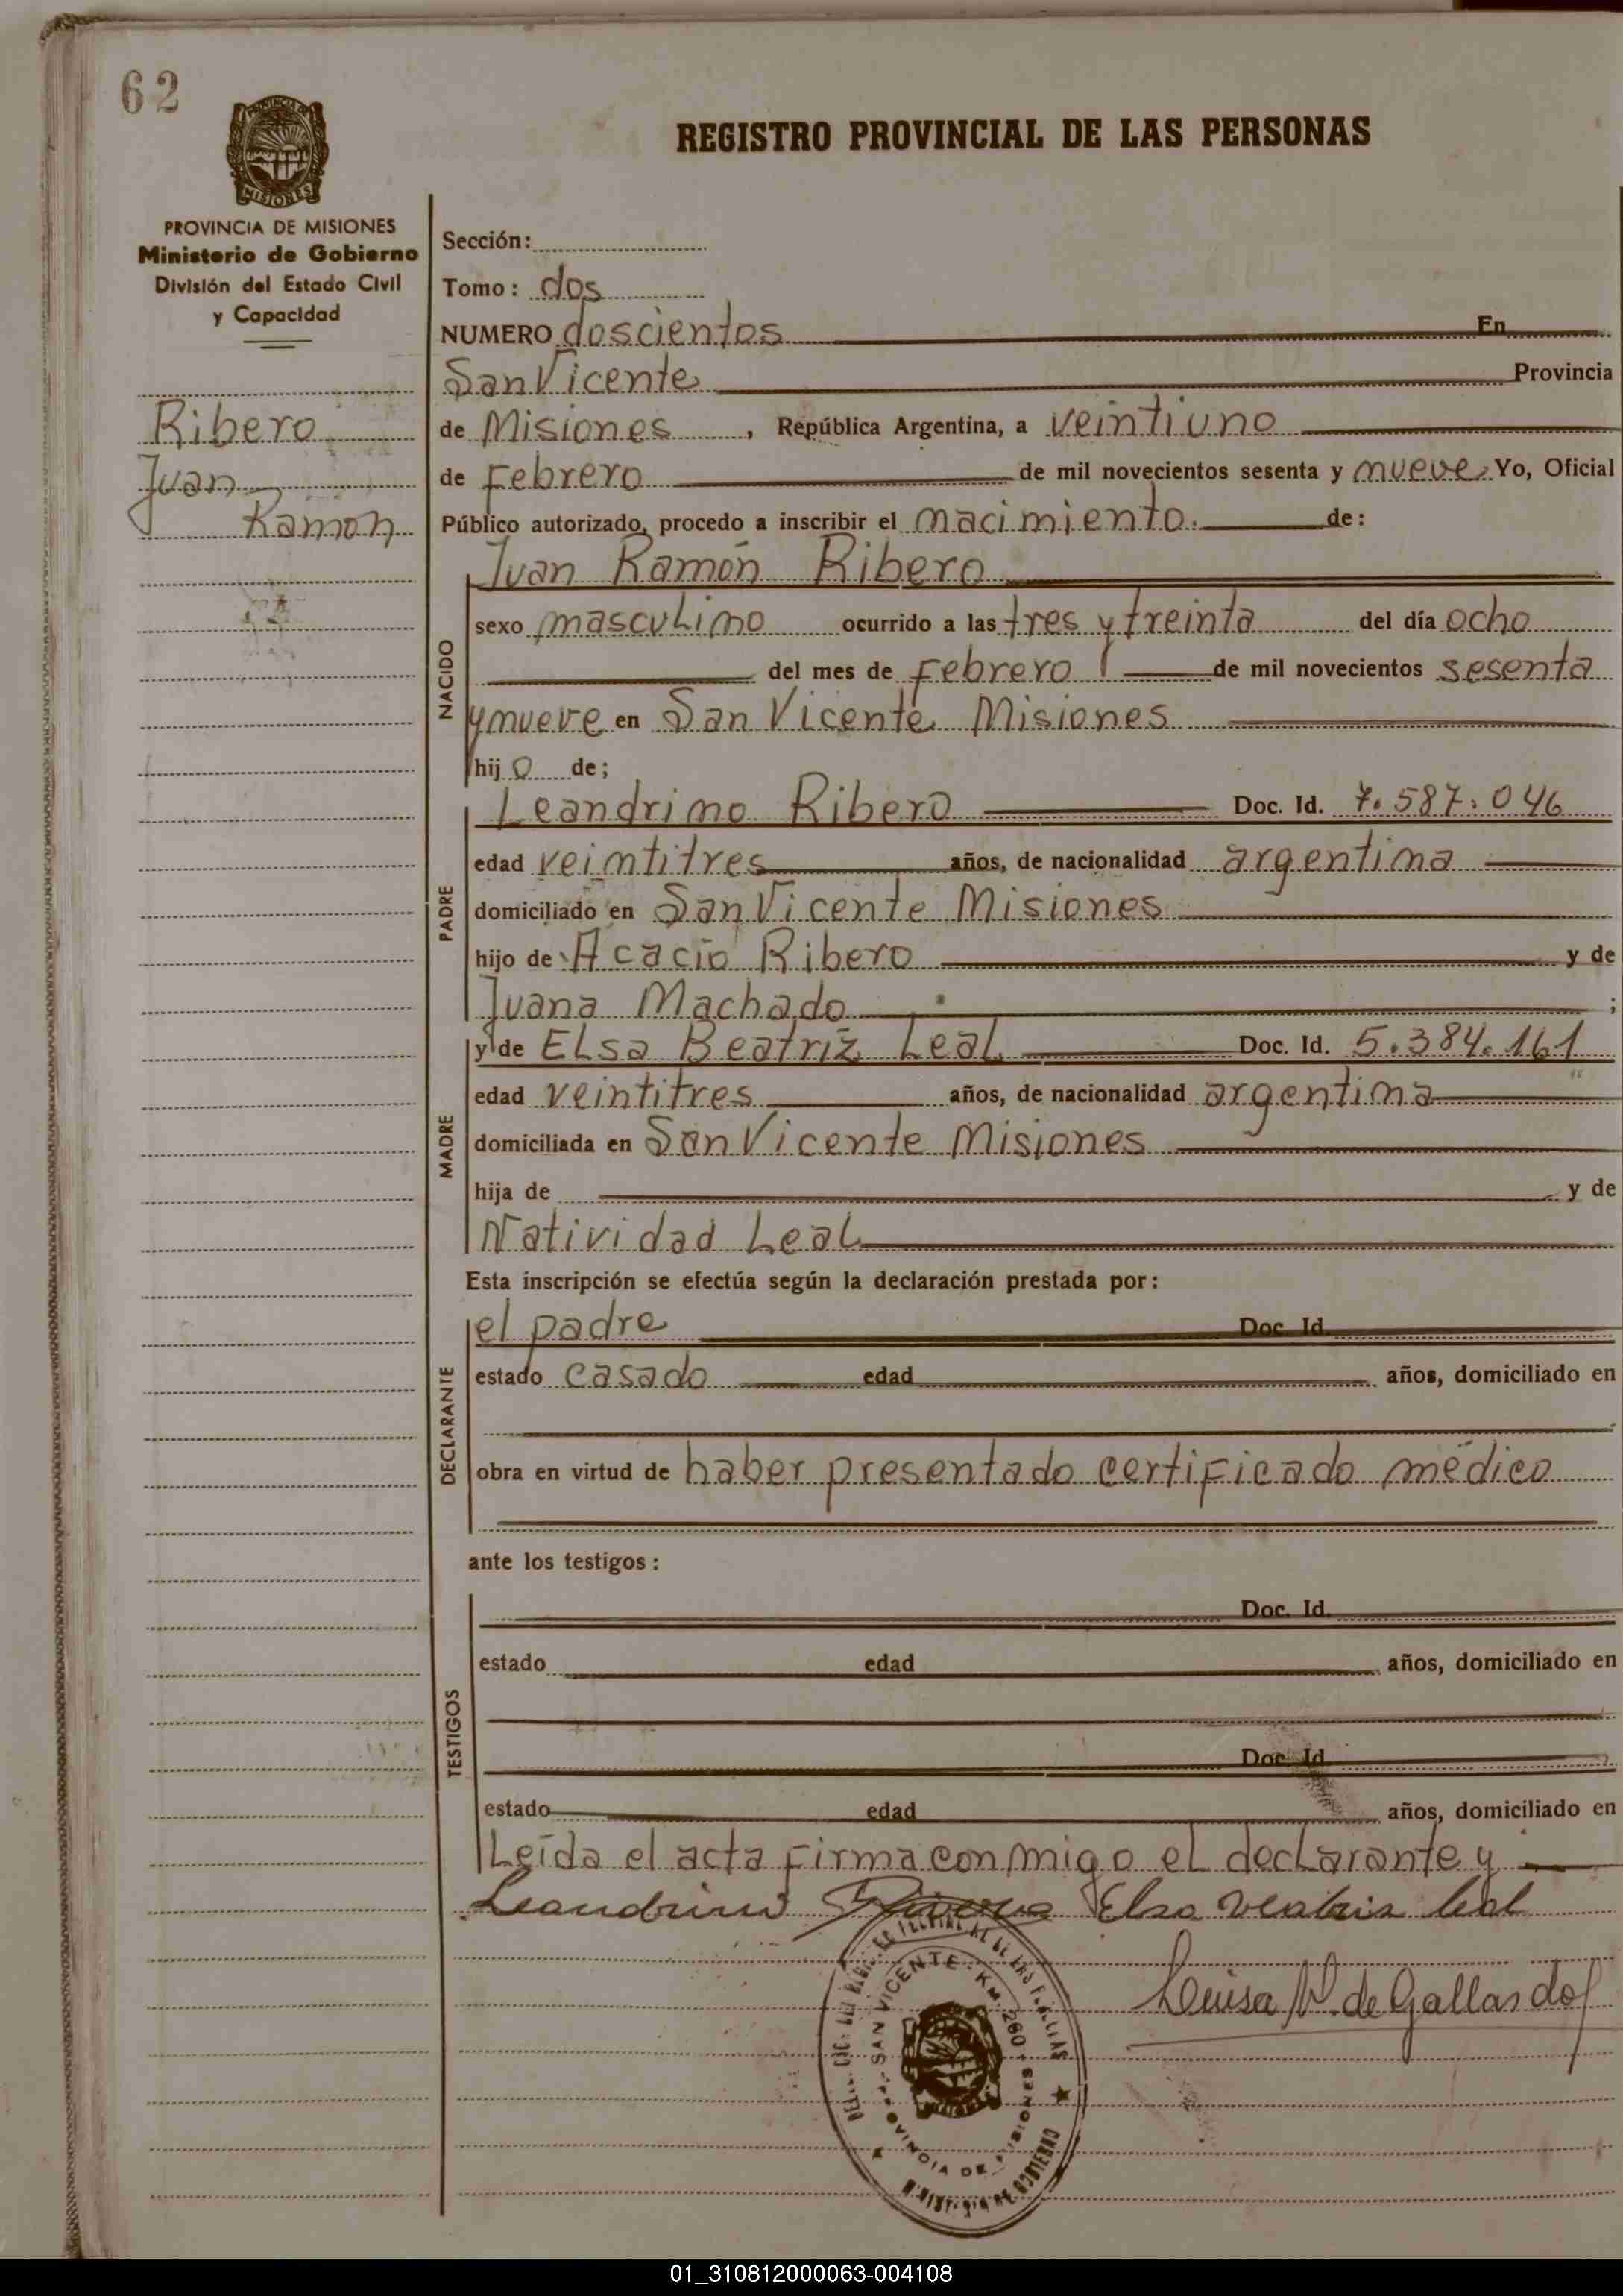 62
REGISTRO PROVINCIAL DE LAS PERSONAS
PROVINCIA DE MISIONES
MISIONES
PROVINCIA DE MISIONES
Ministerio de Gobierno
División del Estado Civil
y Capacidad
Ribero
Juan
Ramon
Sección:
Tomo: dos
NUMERO doscientos En
San Vicente Provincia
de Misiones, República Argentina, a veintiuno
de Febrero de mil novecientos sesenta y nueve Yo, Oficial
Público autorizado, procedo a inscribir el nacimiento. de:
NACIDO
Juan Ramón Ribero
sexo masculino ocurrido a las tres y treinta del día ocho
del mes de Febrero de mil novecientos sesenta
y nueve en San Vicente Misiones
hijo de;
PADRE
Leandrino Ribero Doc. Id. 7.587.046
edad veintitres años, de nacionalidad argentina
domiciliado en San Vicente Misiones
hijo de Acacio Ribero y de
Juana Machado ;
MADRE
y de Elsa Beatríz Leal Doc. Id. 5.384.161
edad veintitres años, de nacionalidad argentina
domiciliada en San Vicente Misiones
hija de y de
Natividad Leal
Esta inscripción se efectúa según la declaración prestada por:
DECLARANTE
el padre Doc. Id.
estado casado edad años, domiciliado en
obra en virtud de haber presentado certificado médico
ante los testigos:
TESTIGOS
Doc. Id.
estado edad años, domiciliado en
Doc. Id.
estado edad años, domiciliado en
Leída el acta firma conmigo el declarante y
Leandrino Rivero Elsa Veatris leal
Luisa N. de Gallardo
SAN VICENTE - KM. 260
PROVINCIA DE MISIONES
MINISTERIO DE GOBIERNO
01_310812000063-004108